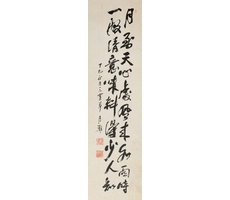 月到天心處風來水面時
一般清意味料得少人知